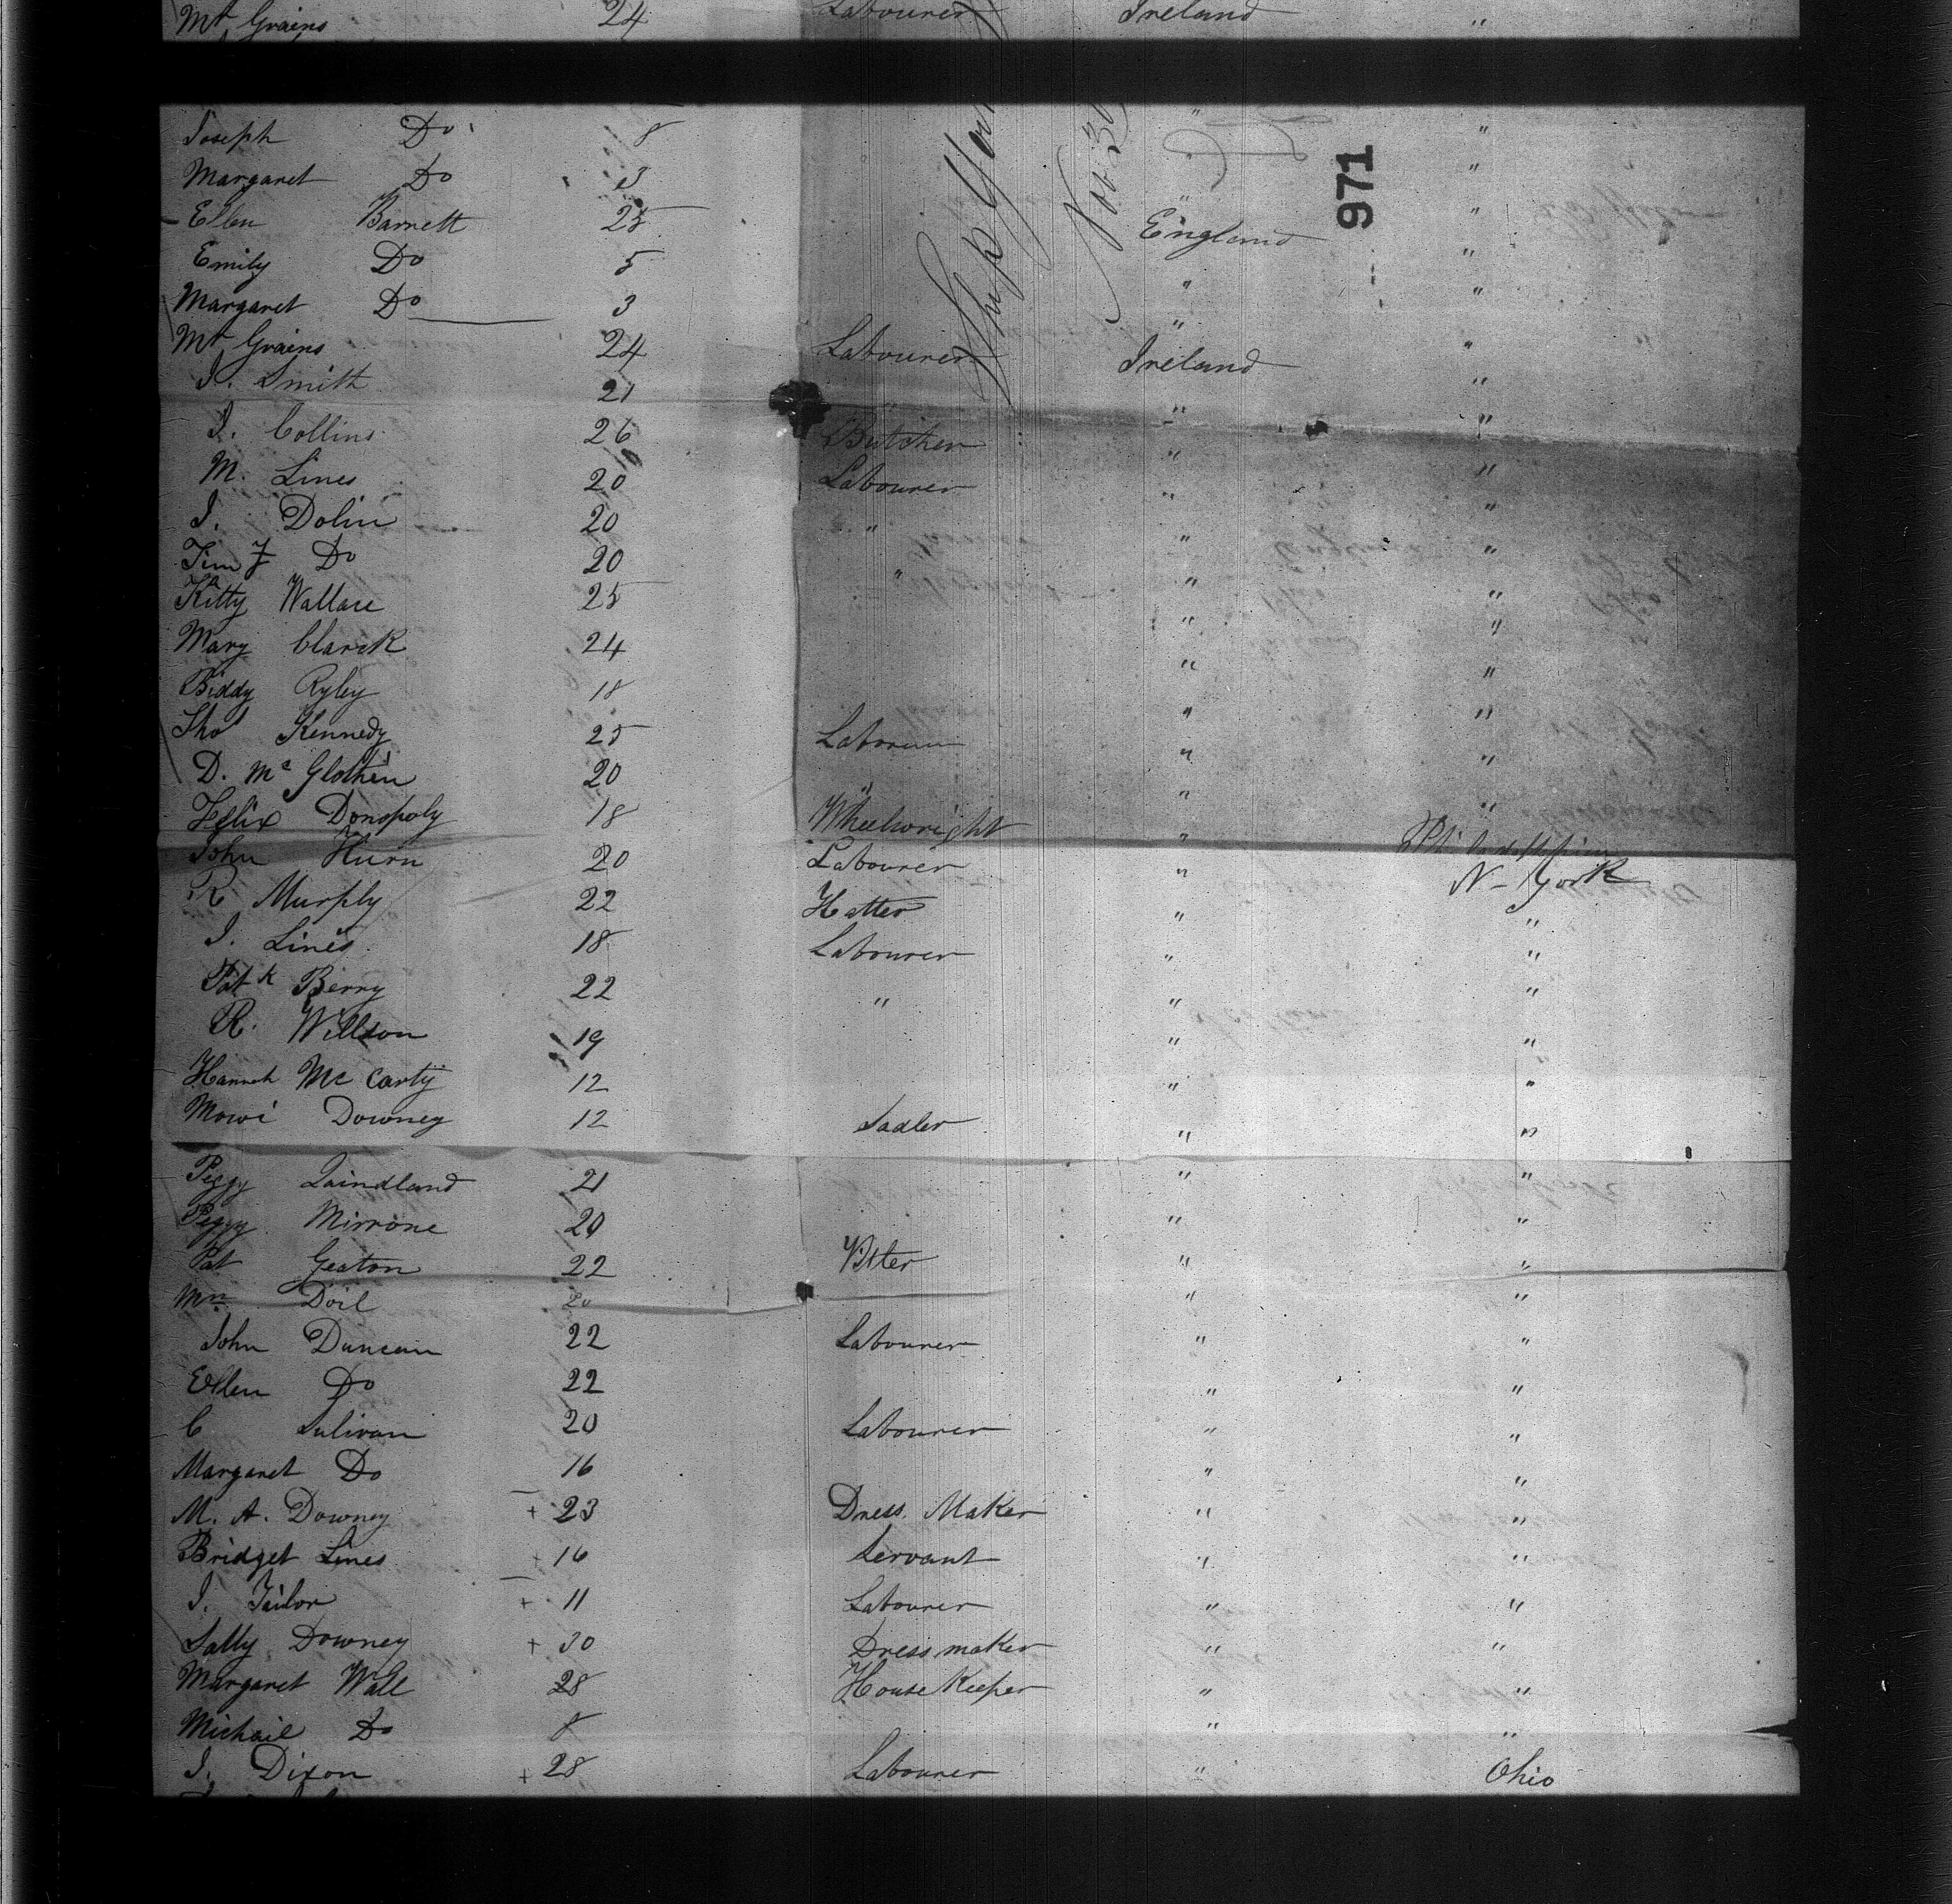 Mt Grains 24 Labourer Ireland "
Joseph Do 8 " "
Margaret Do 3 " "
Ellen Barnett 25 England "
Emily Do 5 " "
Margaret Do 3 " "
Mt Grains 24 Labourer Ireland "
I. Smith 21 " " "
I. Collins 26 Butcher " "
M. Lines 20 Labourer " "
I. Dolin 20 " " "
Tim Do 20 " " "
Kitty Wallace 25 " "
Mary Clarck 24 " "
Biddy Ryley 18 " "
Tho Kennedy 25 " "
D. Mc Glothin 20 " " "
Felix Donopoly 18 Wheelwright "
John Hurn 20 Labourer " N-York
R Murphy 22 Hatter " "
I. Lines 18 Labourer " "
Patk Berry 22 " " "
R. Willson 19 " "
Hannah Mc Carty 12 " "
Mowi Downey 12 Sadler " "
Peggy 21 " "
Peggy Mirrone 20 " "
Pat Geaton 22 " "
Doil 20 " "
John Duncan 22 Labourer " "
Ellen Do 22 " "
C Sulivan 20 Labourer " "
Margaret Do 16 " "
M. A. Downey + 23 Dress Maker " "
Bridget Lines + 16 Servant " "
I. Tailor + 11 Labourer " "
Sally Downey + 30 Dress maker " "
Margaret Wall 28 House Keeper " "
Michail Do 8 " "
I. Dixon + 28 Labourer " Ohio
Ship York
Nov. 30
971